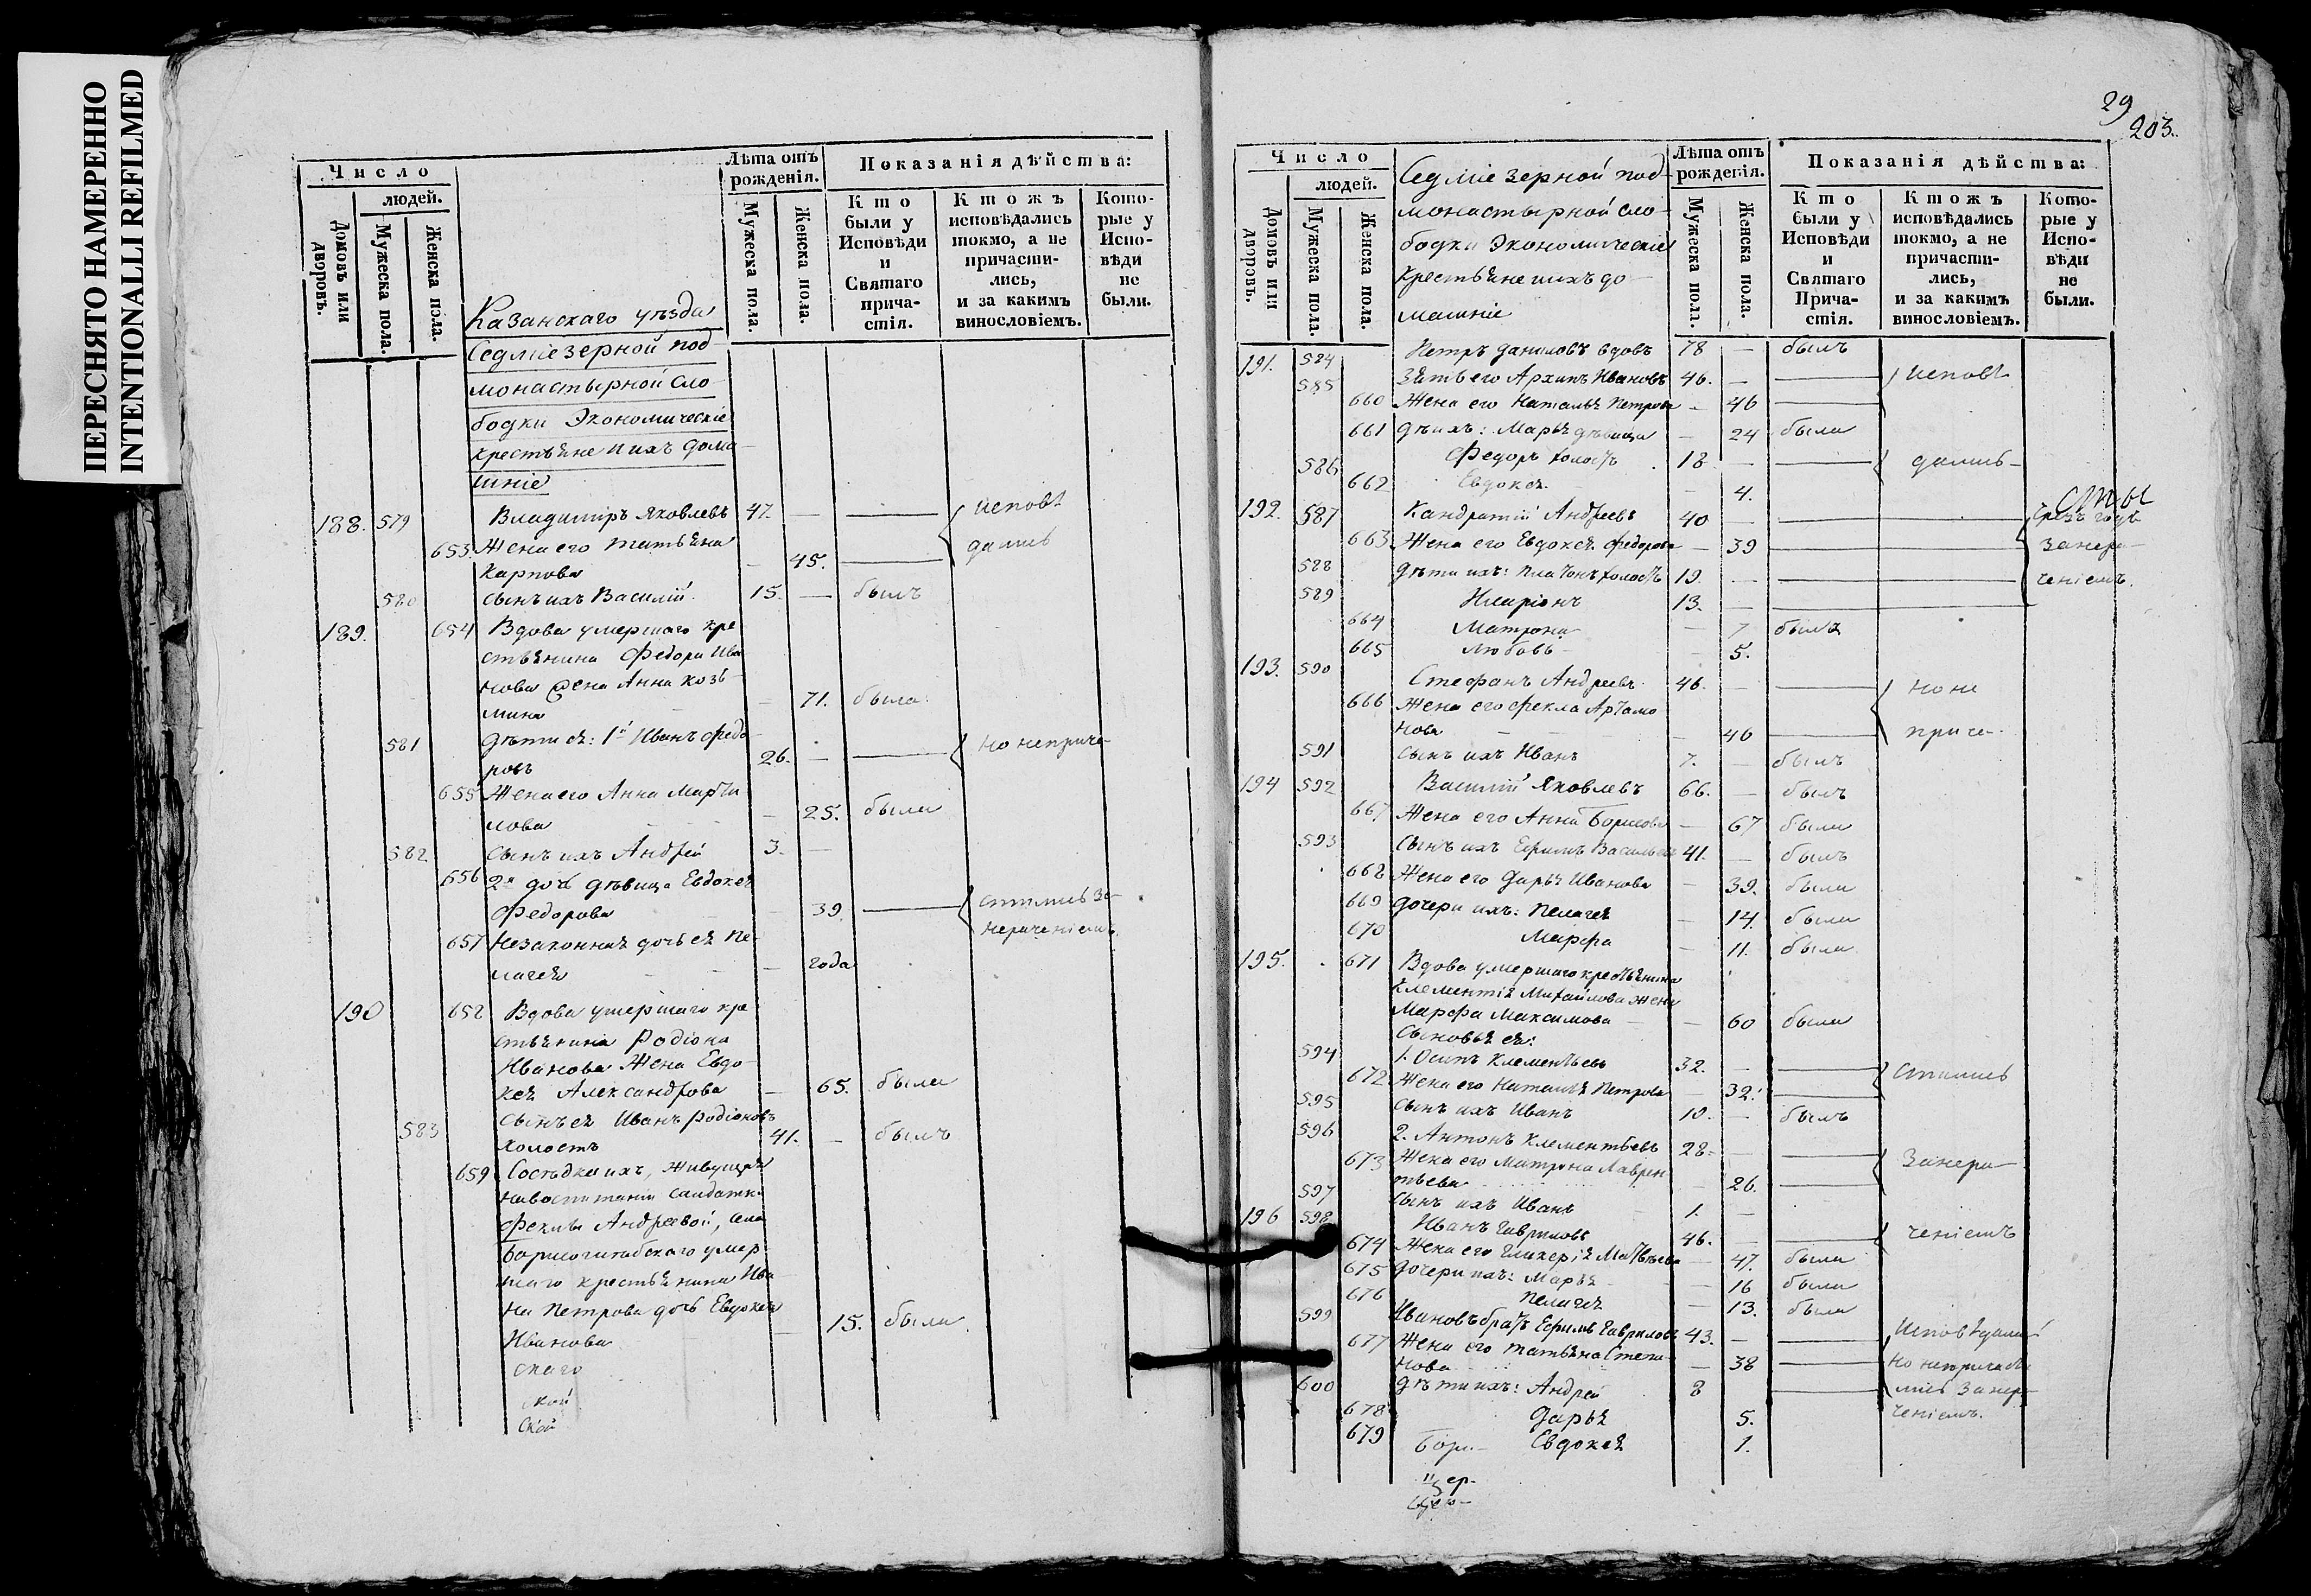 ПЕРЕСНЯТО НАМЕРЕННО
INTENTIONALLI REFILMED
Число
людей.
Домовъ или дворовъ.
Мужеска пола.
Женска пола.
Лѣта отъ рожденія.
Мужеска пола.
Женска пола.
Показанія дѣйства:
Кто были у Исповѣди и Святаго прича-стія.
Ктожъ исповѣдались токмо, а не причасти-лись, и за какимъ винословіемъ.
Кото-рые у Испо-вѣди не были.
Казанскаго уѣзда
Седміезерной под
монастырной сло
бодки Экономическіе
крестьяне и ихъ дома
шніе
188. 579 Владимiръ Яковлевъ 47. — — исповѣ
653 Жена его Татьяна
Карпова — 45. — дались
580 сынъ ихъ Василій 15. — былъ
189. 654 Вдова умершаго кре
стьянина Федора Ива
нова жена Анна Козь
мина — 71. была
581 дѣти ея: 1й Иванъ Федо
ровъ 26. — — но неприча
655 Жена его Анна Марти
нова — 25. была
582 сынъ ихъ Андрей 3. —
656 2я дочь дѣвица Евдокея
Федорова — 39. — стились за
нераченіемъ
657 Незаконная дочь ея Пе
лагея — года
190 658 Вдова умершаго кре
стьянина Родіона
Иванова Жена Евдо
кея Александрова — 65. была
583 сынъ ея Иванъ Родіоновъ
холостъ 41. — былъ
659 Сосѣдка ихъ, живущая
на воспитаніи салдатки
Феклы Андреевой, села
умер
шаго крестьянина Ива
на Петрова дочь Евдокея
Иванова — 15. была
скаго
ской
ской
29
203.
Число
людей.
Домовъ или дворовъ.
Мужеска пола.
Женска пола.
Седміезерной под
монастырной сло
бодки Экономическіе
крестьяне и ихъ до
машніе
Лѣта отъ рожденія.
Мужеска пола.
Женска пола.
Показанія дѣйства:
Кто были у Исповѣди и Святаго Прича-стія.
Ктожъ исповѣдались токмо, а не причасти-лись, и за какимъ винословіемъ.
Кото-рые у Испо-вѣди не были.
191. 584 Петръ Даниловъ вдовъ 78 — былъ
585 Зять его Архипъ Ивановъ 46. — — исповѣ
660 Жена его Наталья Петрова — 46 —
661 дѣти ихъ: Марья дѣвица — 24 была
586 Федоръ холостъ 18 — — дались
662 Евдокея — 4.
192. 587 Кандратій Андреевъ 40 — —
663 Жена его Евдокея Федорова — 39 — занера
588 дѣти ихъ: Платонъ холостъ 19. — — ченіемъ.
589 Иларіонъ 13. — —
664 Матрона — 7 была
665 Любовь — 5.
193. 590 Стефанъ Андреевъ 46. — — но не
666 Жена его Фекла Артамо
нова — 46 — прича
591 сынъ ихъ Иванъ 7. — былъ
194 592 Василій Яковлевъ 66. — былъ
667 Жена его Анна Борисова — 67 была
593 сынъ ихъ Ефимъ Васильевъ 41. — былъ
668 Жена его Дарья Иванова — 39. была
669 дочери ихъ: Пелагея — 14. была
670 Марфа — 11. была
195. 671 Вдова умершаго крестьянина
Клементія Михайлова жена
Марфа Максимова — 60 была
Сыновья ея:
594 1. Осипъ Клементьевъ 32. — — стились
672 Жена его Наталья Петрова — 32. —
595 сынъ ихъ Иванъ 10. — былъ
596 2. Антонъ Клементьевъ 28. — —
673 Жена его Матрона Лаврен
тьева — 26. — занера
597 сынъ ихъ Иванъ 1. —
196 598 Иванъ Гавриловъ 46. — — ченіемъ
674 Жена его Гликерія Матвѣева — 47. была
675 дочери ихъ: Марья — 16 была
676 Пелагея — 13. была
599 Ивановъ братъ Ефимъ Гавриловъ 43. — — Исповѣдались
677 Жена его Татьяна Степа
нова — 38 — но непричасти
600 дѣти ихъ: Андрей 8 — лись занера
678 Дарья 5. ченіемъ.
679 Евдокея 1.